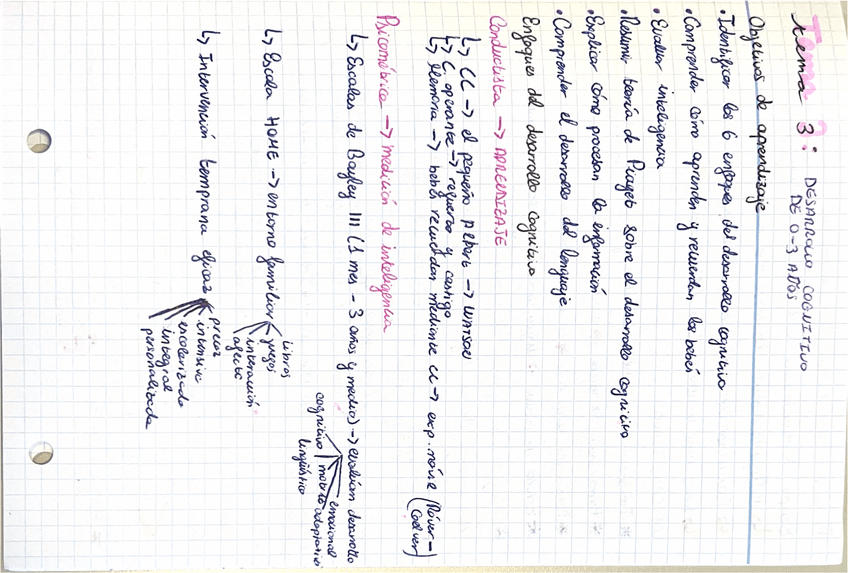 Tema 3: DESARROLLO COGNITIVO
DE 0-3 AÑOS
Objetivos de aprendizaje
• Identificar los 6 enfoques del desarrollo cognitivo
• Comprender cómo aprenden y recuerdan los bebés
• Evaluar inteligencia
• Resumir teoría de Piaget sobre el desarrollo cognitivo
• Explicar cómo procesan la información
• Comprender el desarrollo del lenguaje
Enfoques del desarrollo cognitivo
Conductista → APRENDIZAJE
↳ CC → el pequeño Albert → WATSON
↳ C operante → refuerzo y castigo
↳ Memoria → bebés recuerdan mediante CC → exp. móvil (Róver-
Psicométrico → medición de inteligencia
↳ Escalas de Bayley III (1 mes - 3 años y medio) → evalúan desarrollo
emocional
adaptativo
motriz
cognitivo
lingüístico
↳ Escala HOME → entorno familiar
libros
juegos
interacción
afecto
↳ Intervención temprana eficaz
precoz
intensiva
escolarizada
integral
personalizada